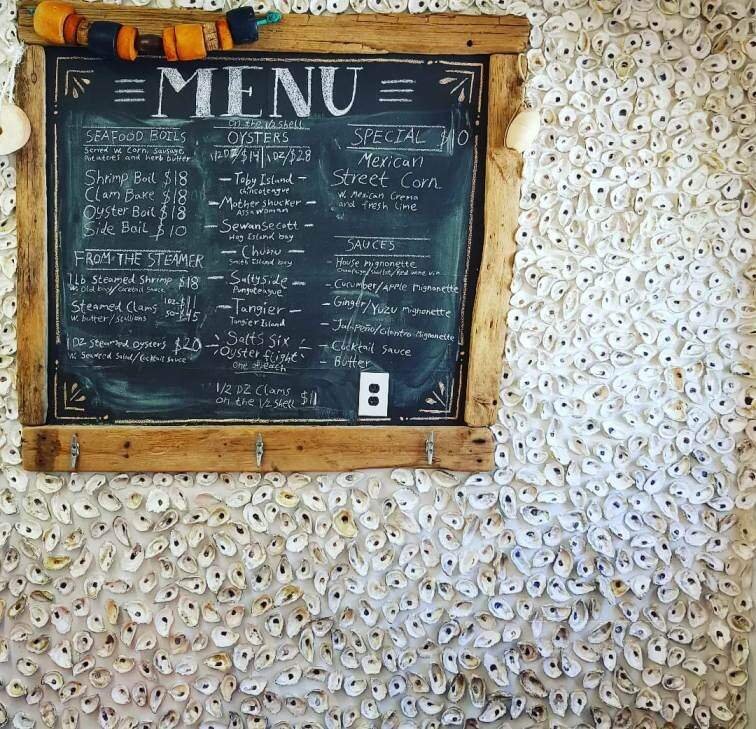 MENU
SEAFOOD BOILS
Served w. Corn, Sausage,
Potatoes and herb butter
Shrimp Boil $18
Clam Bake $18
Oyster Boil $18
Side Boil $10
FROM THE STEAMER
1 Lb Steamed Shrimp $18
w. Old bay/Cocktail Sauce
Steamed Clams
w. butter/scallions
1 DZ steamed oysters $20
w. Seaweed Salad/Cocktail Sauce
on the 1/2 shell
OYSTERS
1/2 DZ/$14 1 DZ/$28
– Toby Island –
Chincoteague
– Mother shucker –
Assawoman
– Sewansecott –
Hog Island bay
– Chunu –
Smith Island bay
– Saltyside –
Pungoteague
– Tangier –
Tangier Island
Salts Six
Oyster flight
one of each
1/2 DZ Clams
on the 1/2 shell $11
SPECIAL $10
Mexican
Street Corn
w. Mexican Crema
and fresh lime
SAUCES
– House mignonette
– Cucumber/Apple Mignonette
– Ginger/Yuzu mignonette
– Jalapeño/cilantro Mignonette
– Cocktail Sauce
– Butter